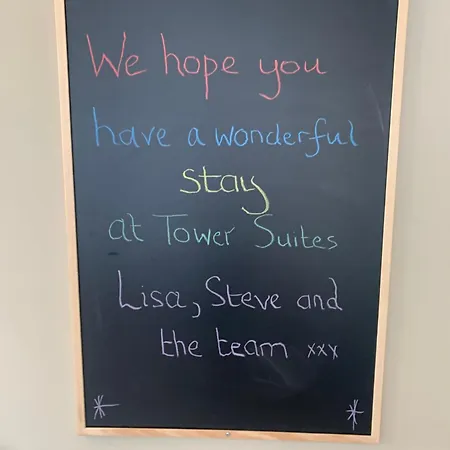 We hope you
have a wonderful
stay
at Tower Suites
Lisa, Steve and
the team xxx